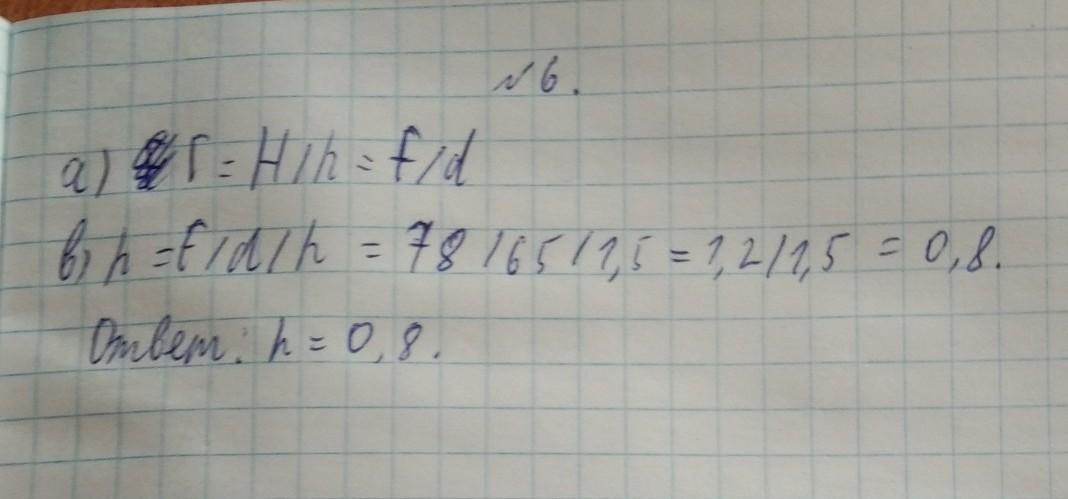 №6.
а) Г = H/h = f/d
в) h = f/d/h = 78/65/1,5 = 1,2/1,5 = 0,8.
Ответ: h = 0,8.